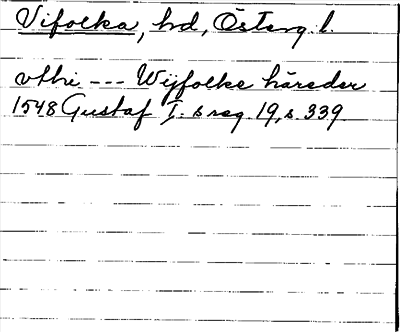 Vifolka, hd, Österg. l.
vthi --- Wijfolke häreder
1548 Gustaf I:s reg 19, s. 339